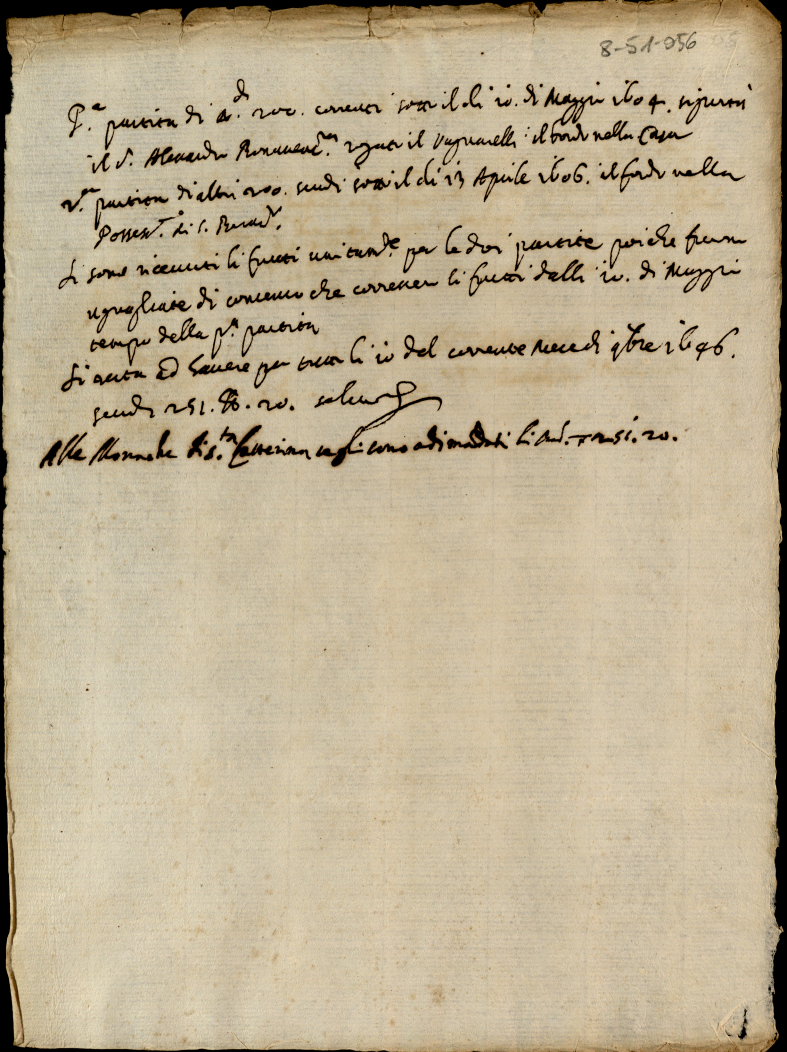 8-51-056
P.ª partita di ▽.di 200. correnti sotto il dì 10. di Maggio 1604. si portò
il S. Alesandro rogato il Vagnarelli il fondo nella Casa
2.ª partita di altri 200. scudi sotto il dì 13 Aprile 1606. il fondo nella
Possess.e di S.
Si sono ricevuti li frutti unitam.e per le doi partite poiche furno
uguagliate di convento che corressero li frutti dalli 10. di Maggio
tempo della p.ª partita
Si resta ad havere per tutto li 10 del corrente mese di 9bre 1646.
scudi 251. 20.
Alle Monache di S.ta Catterina li 251. 20.